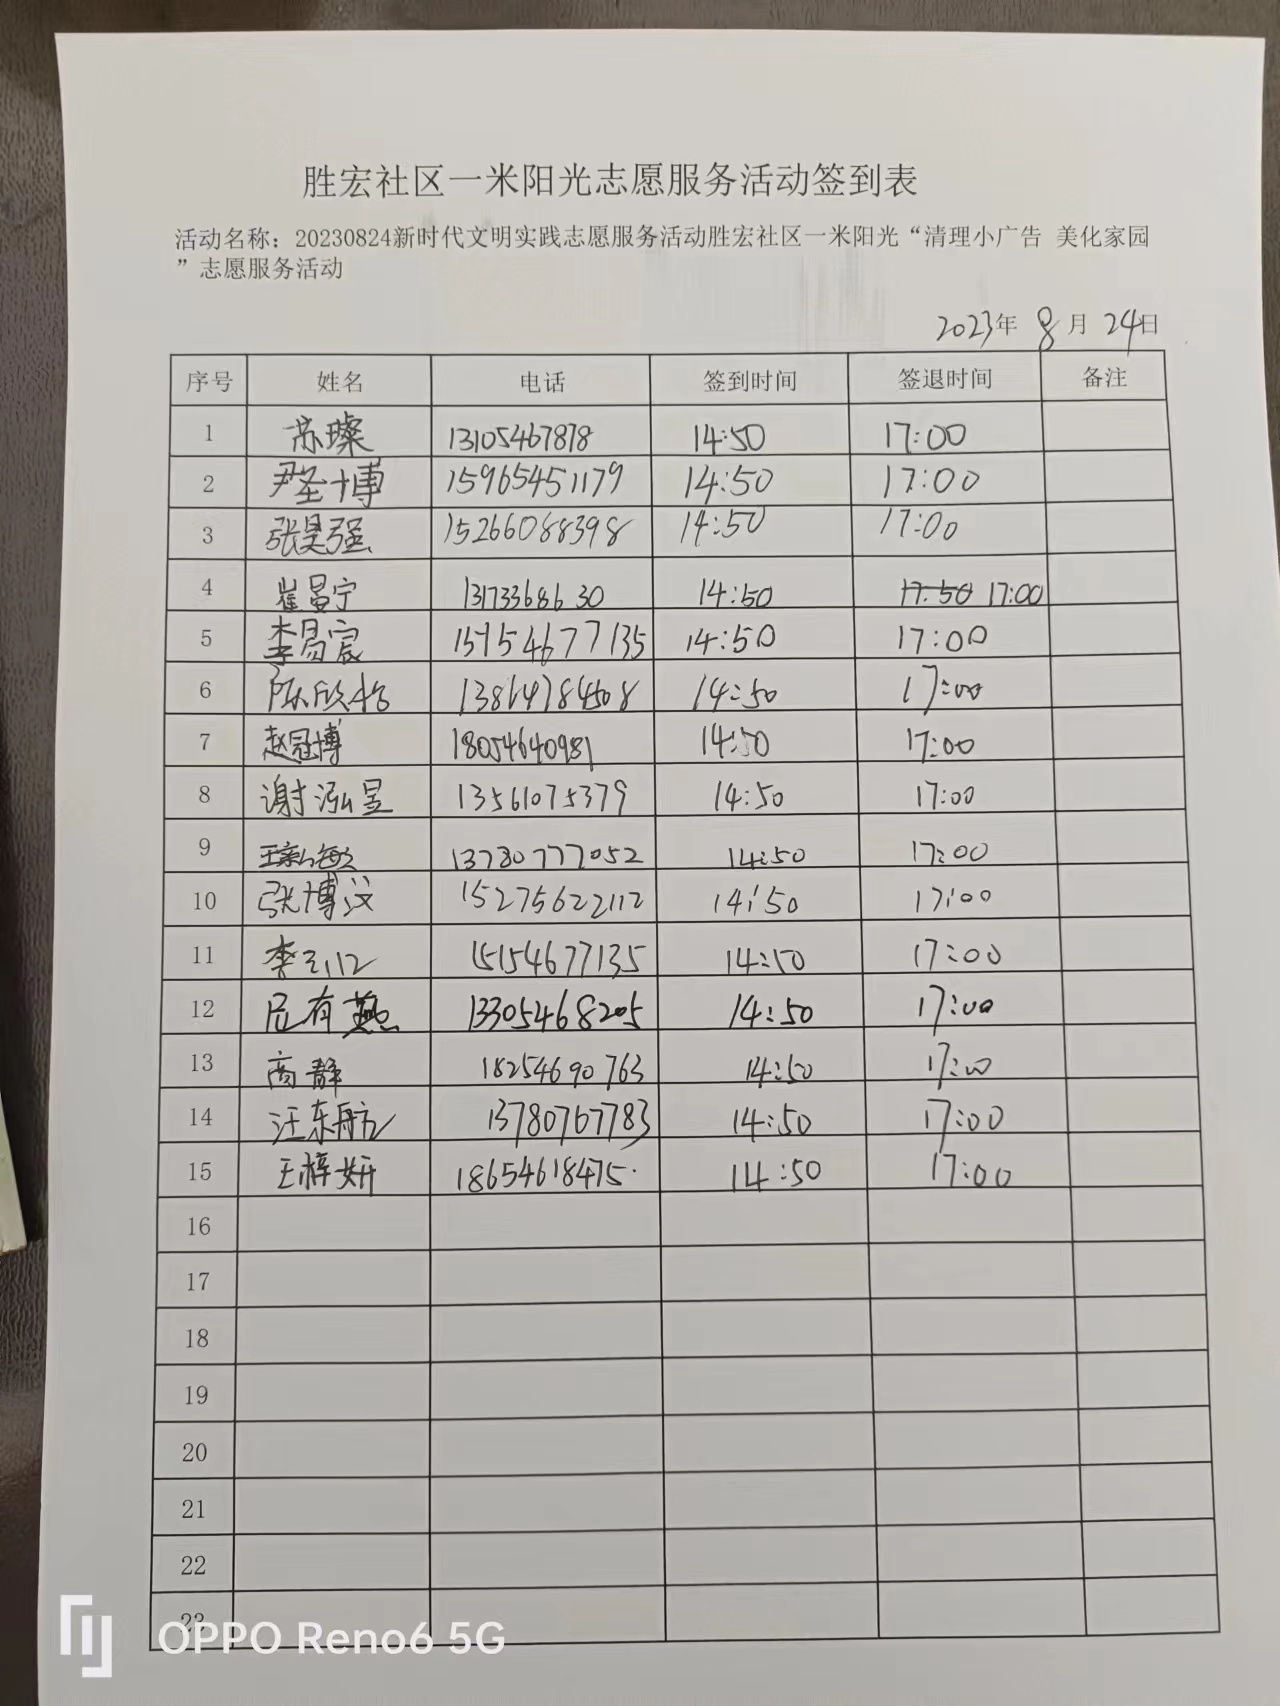 胜宏社区一米阳光志愿服务活动签到表
活动名称：20230824新时代文明实践志愿服务活动胜宏社区一米阳光“清理小广告 美化家园
”志愿服务活动
2023年 8月 24日
序号 姓名 电话 签到时间 签退时间 备注
1 苏璨 13105467878 14:50 17:00
2 尹圣博 15965451179 14:50 17:00
3 张昊强 15266088398 14:50 17:00
4 崔晏宁 13173368630 14:50 17:50 17:00
5 李易宸 15154677135 14:50 17:00
6 陈欣怡 13864784508 14:50 17:00
7 赵冠博 18054640981 14:50 17:00
8 谢泓昱 13561075379 14:50 17:00
9 13780777052 14:50 17:00
10 张博汶 15275622112 14:50 17:00
11 李 15154677135 14:50 17:00
12 有燕 13305468205 14:50 17:00
13 高静 18254690763 14:50 17:00
14 汪东航 13780767783 14:50 17:00
15 王梓妍 18654618475 14:50 17:00
16
17
18
19
20
21
22
23
OPPO Reno6 5G